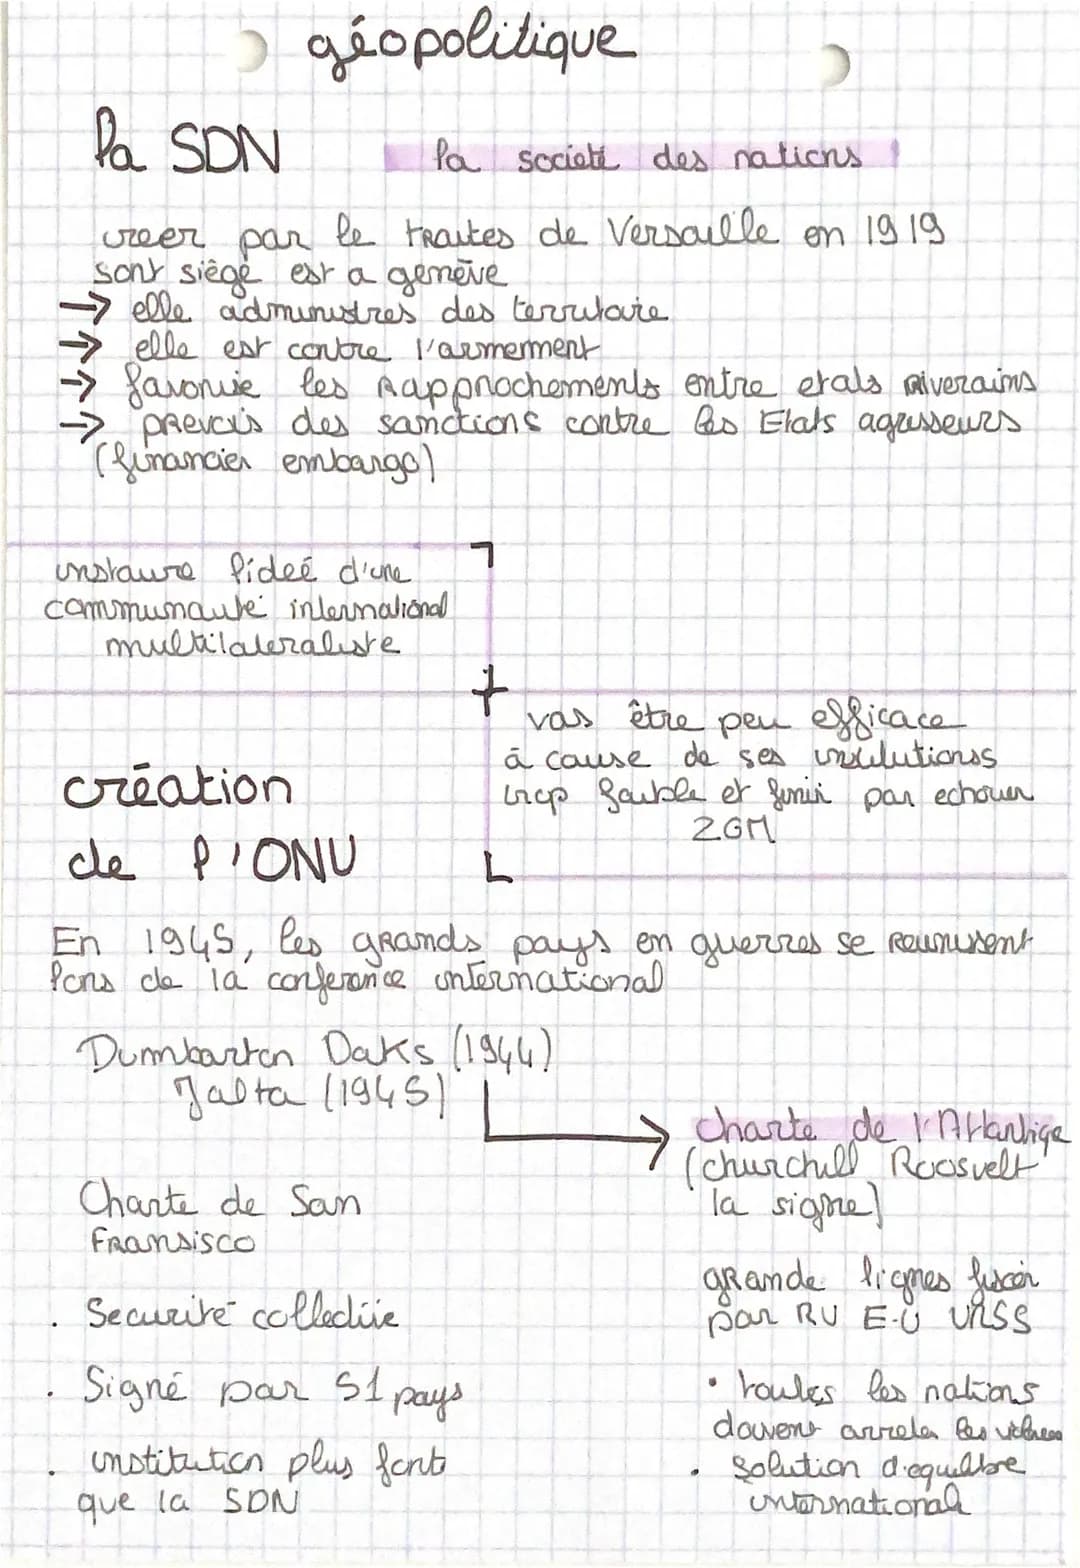 géopolitique
la SDN
la societé des nations
creer par le traites de Versaille en 1919
sont siège est a genève
→ elle administres des territaire
→ elle est contre l'armerment
→ favorise les Rapprochements entre etats riverains
→ prevois des sanctions contre les Etats agresseurs
(financier embargo)
instaure l'ideé d'une
communauté international
multilateraliste
+
vas être peu efficace
à cause de ses institutions
trop faible et finir par echouer
2GM
création
de l'ONU
En 1945, les grands pays en guerres se reunissent
lors de la conference international
Dumbarton Oaks (1944)
Jalta (1945)
→ charte de l'Atlantiqe
(churchill Roosvelt
la signe)
Charte de San
Fransisco
. Securité collective
. Signé par 51 pays
. institution plus forte
que la SDN
grande lignes fixer
par RU E-U URSS
• toutes les nations
doivent arreter les
. solution d'equilbre
international